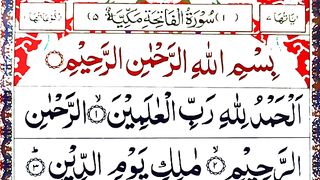 اٰیَاتُهَا ٧ ﴿١﴾ سُوْرَةُ الْفَاتِحَةِ مَكِّيَّةٌ ﴿٥﴾ رُكُوْعُهَا ١
بِسْمِ اللّٰهِ الرَّحْمٰنِ الرَّحِيْمِ
اَلْحَمْدُ لِلّٰهِ رَبِّ الْعٰلَمِيْنَ ۙ﴿١﴾ الرَّحْمٰنِ
الرَّحِيْمِ ۙ﴿٢﴾ مٰلِكِ يَوْمِ الدِّيْنِ ؕ﴿٣﴾